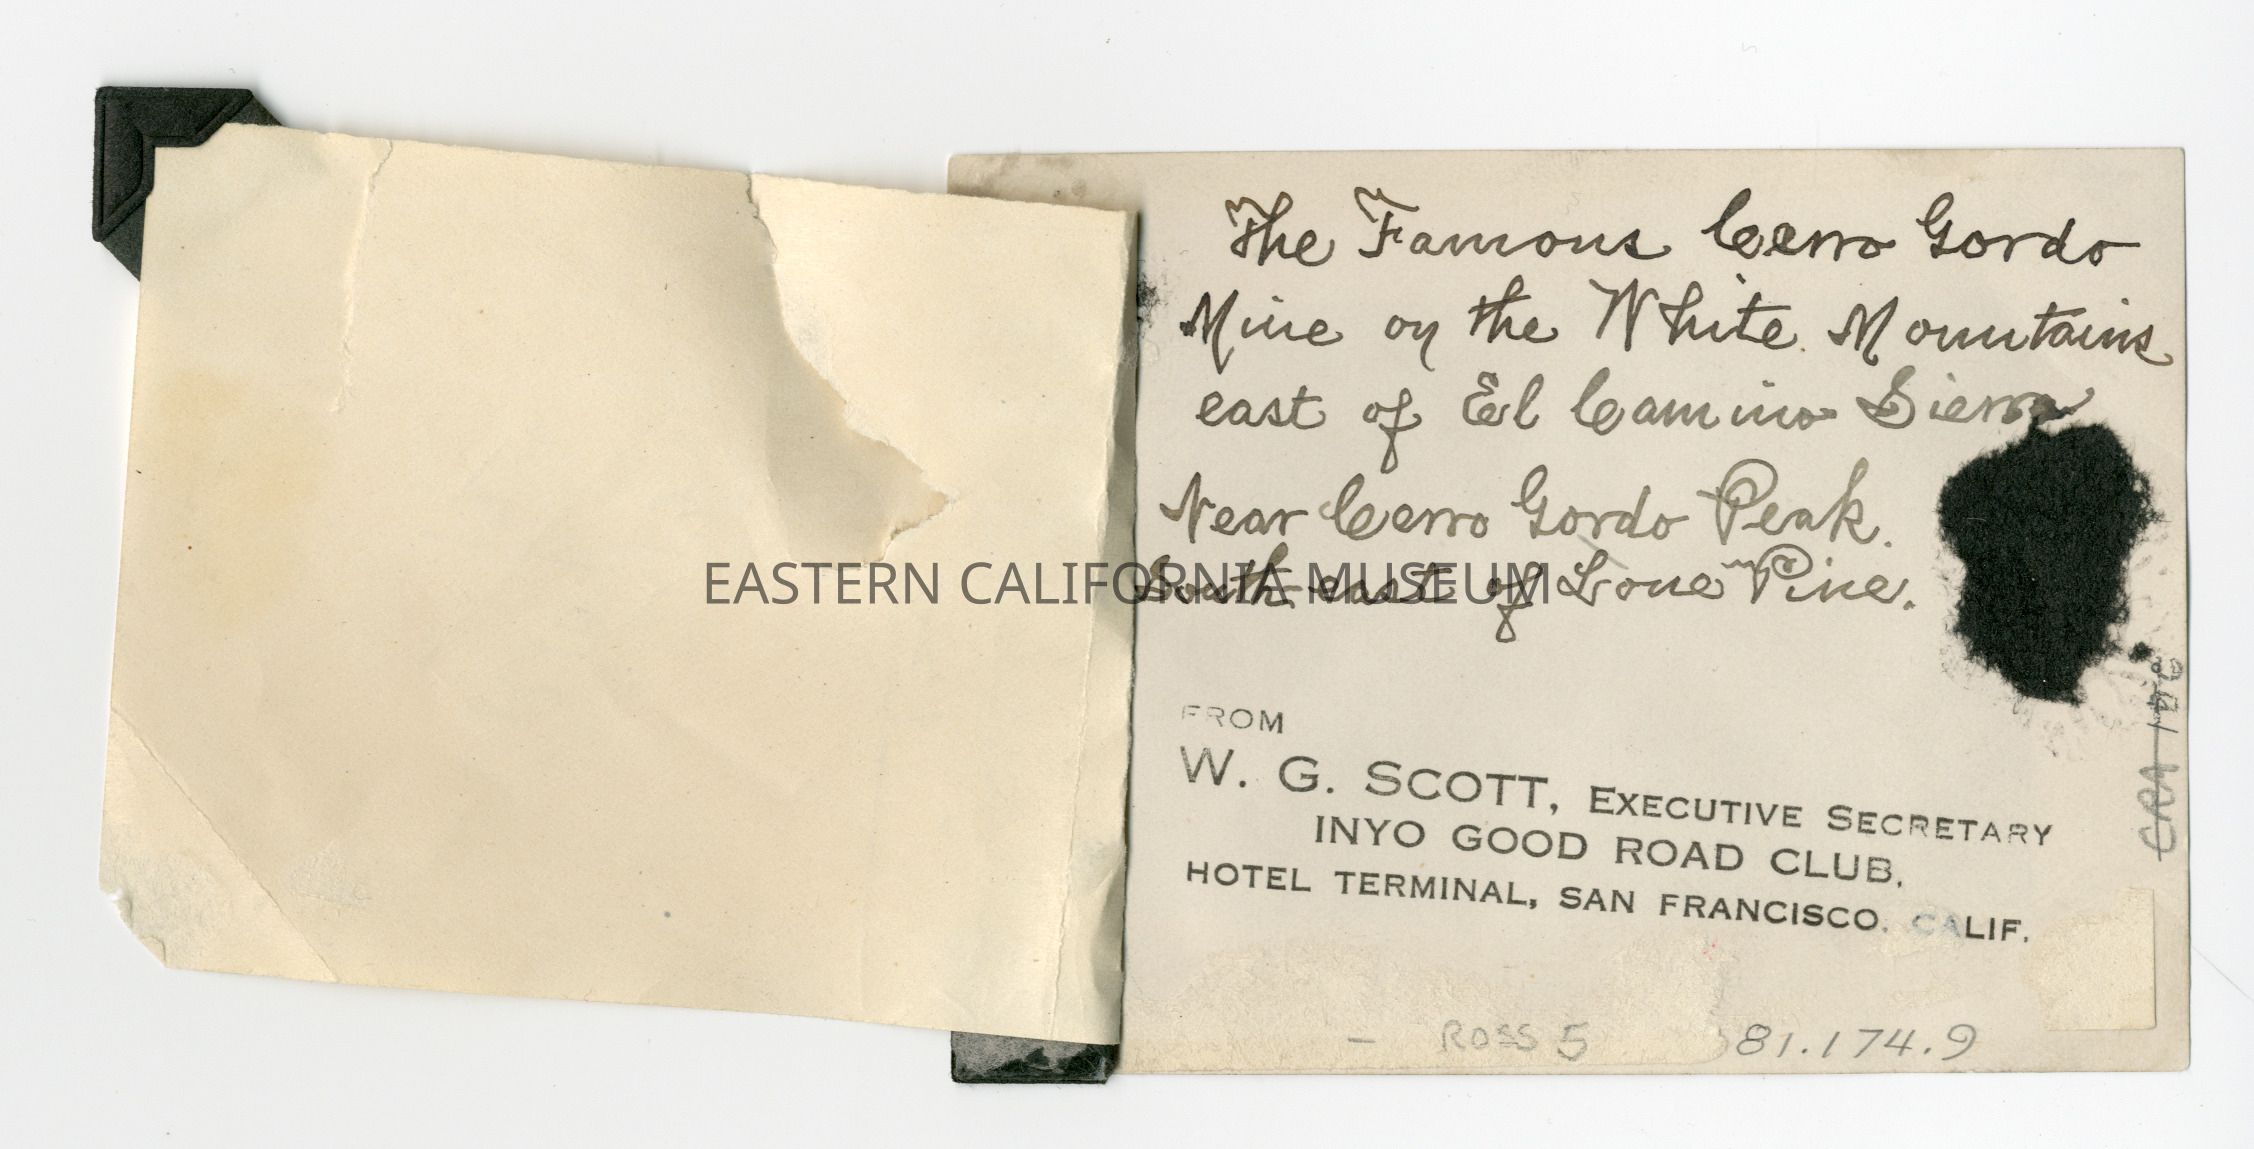 The Famous Cerro Gordo
Mine on the White Mountains
east of El Camino Sierra
Near Cerro Gordo Peak.
South east of Lone Pine.
EASTERN CALIFORNIA MUSEUM
FROM
W. G. SCOTT, EXECUTIVE SECRETARY
INYO GOOD ROAD CLUB,
HOTEL TERMINAL, SAN FRANCISCO, CALIF.
- ROSS 5 81.174.9